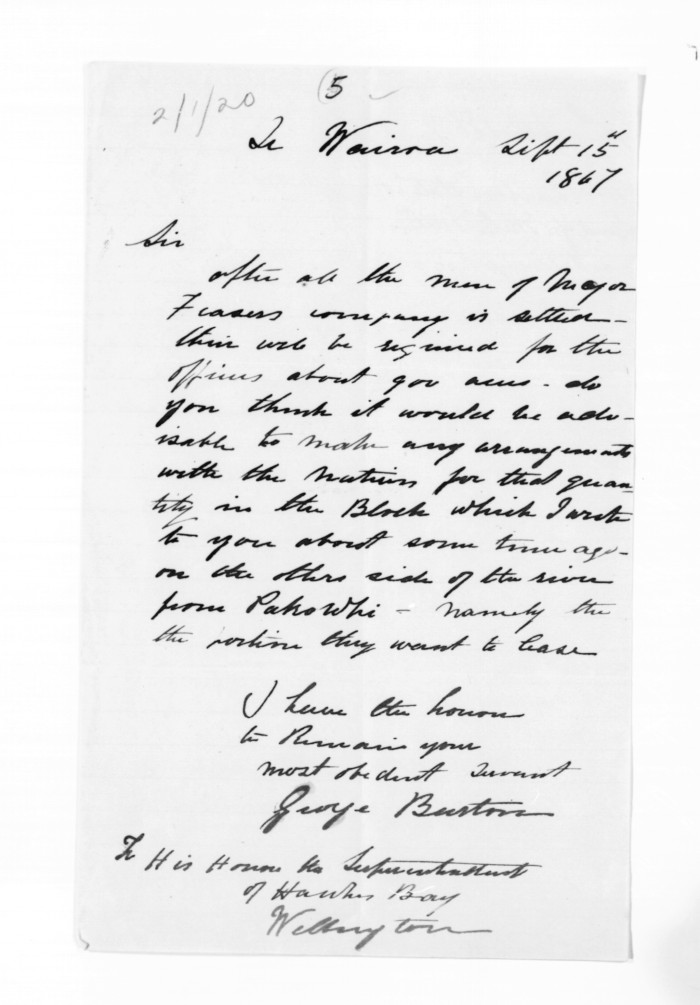 5
2/1/20
Te Wairoa Sept 15th
1867
Sir
after all the men of Major
Frasers company is settled -
their will be reqired for the
officers about 900 acres - do
you think it would be adv-
isable to make any arrangements
with the Natives for that quan-
tity in the Block which I wrote
to you about some time ago -
on the other side of the river
from Pakowhi - namely the
the portion they want to lease
I have the honour
to Remain your
most obedient servant
George Burton
To His Honor the Superintendent
of Hawkes Bay
Wellington